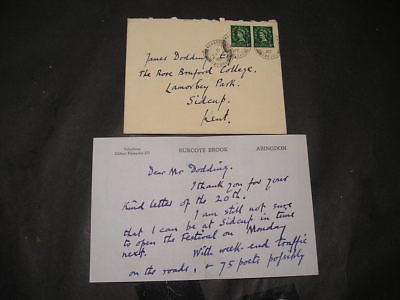 James Dodding Esq
The Rose Bruford College,
Lamorbey Park.
Sidcup,
Kent.
Telephone
BURCOTE BROOK
ABINGDON
Dear Mr Dodding.
I thank you for your
kind letter of the 20th.
I am still not sure
that I can be at Sidcup in time
to open the Festival on Monday
next.
With week-end traffic
on the roads, & 75 poets possibly